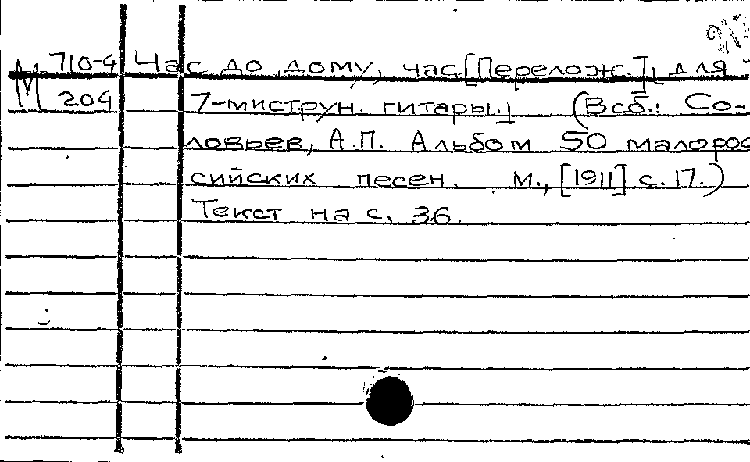 М 710-4 Час до дому, час [Перелож.], для
204 7-миструн. гитары.] (В сб.: Со-
ловьев, А.П. Альбом 50 малорос
сийских песен. М., [1911] с. 17.)
Текст на с. 36.